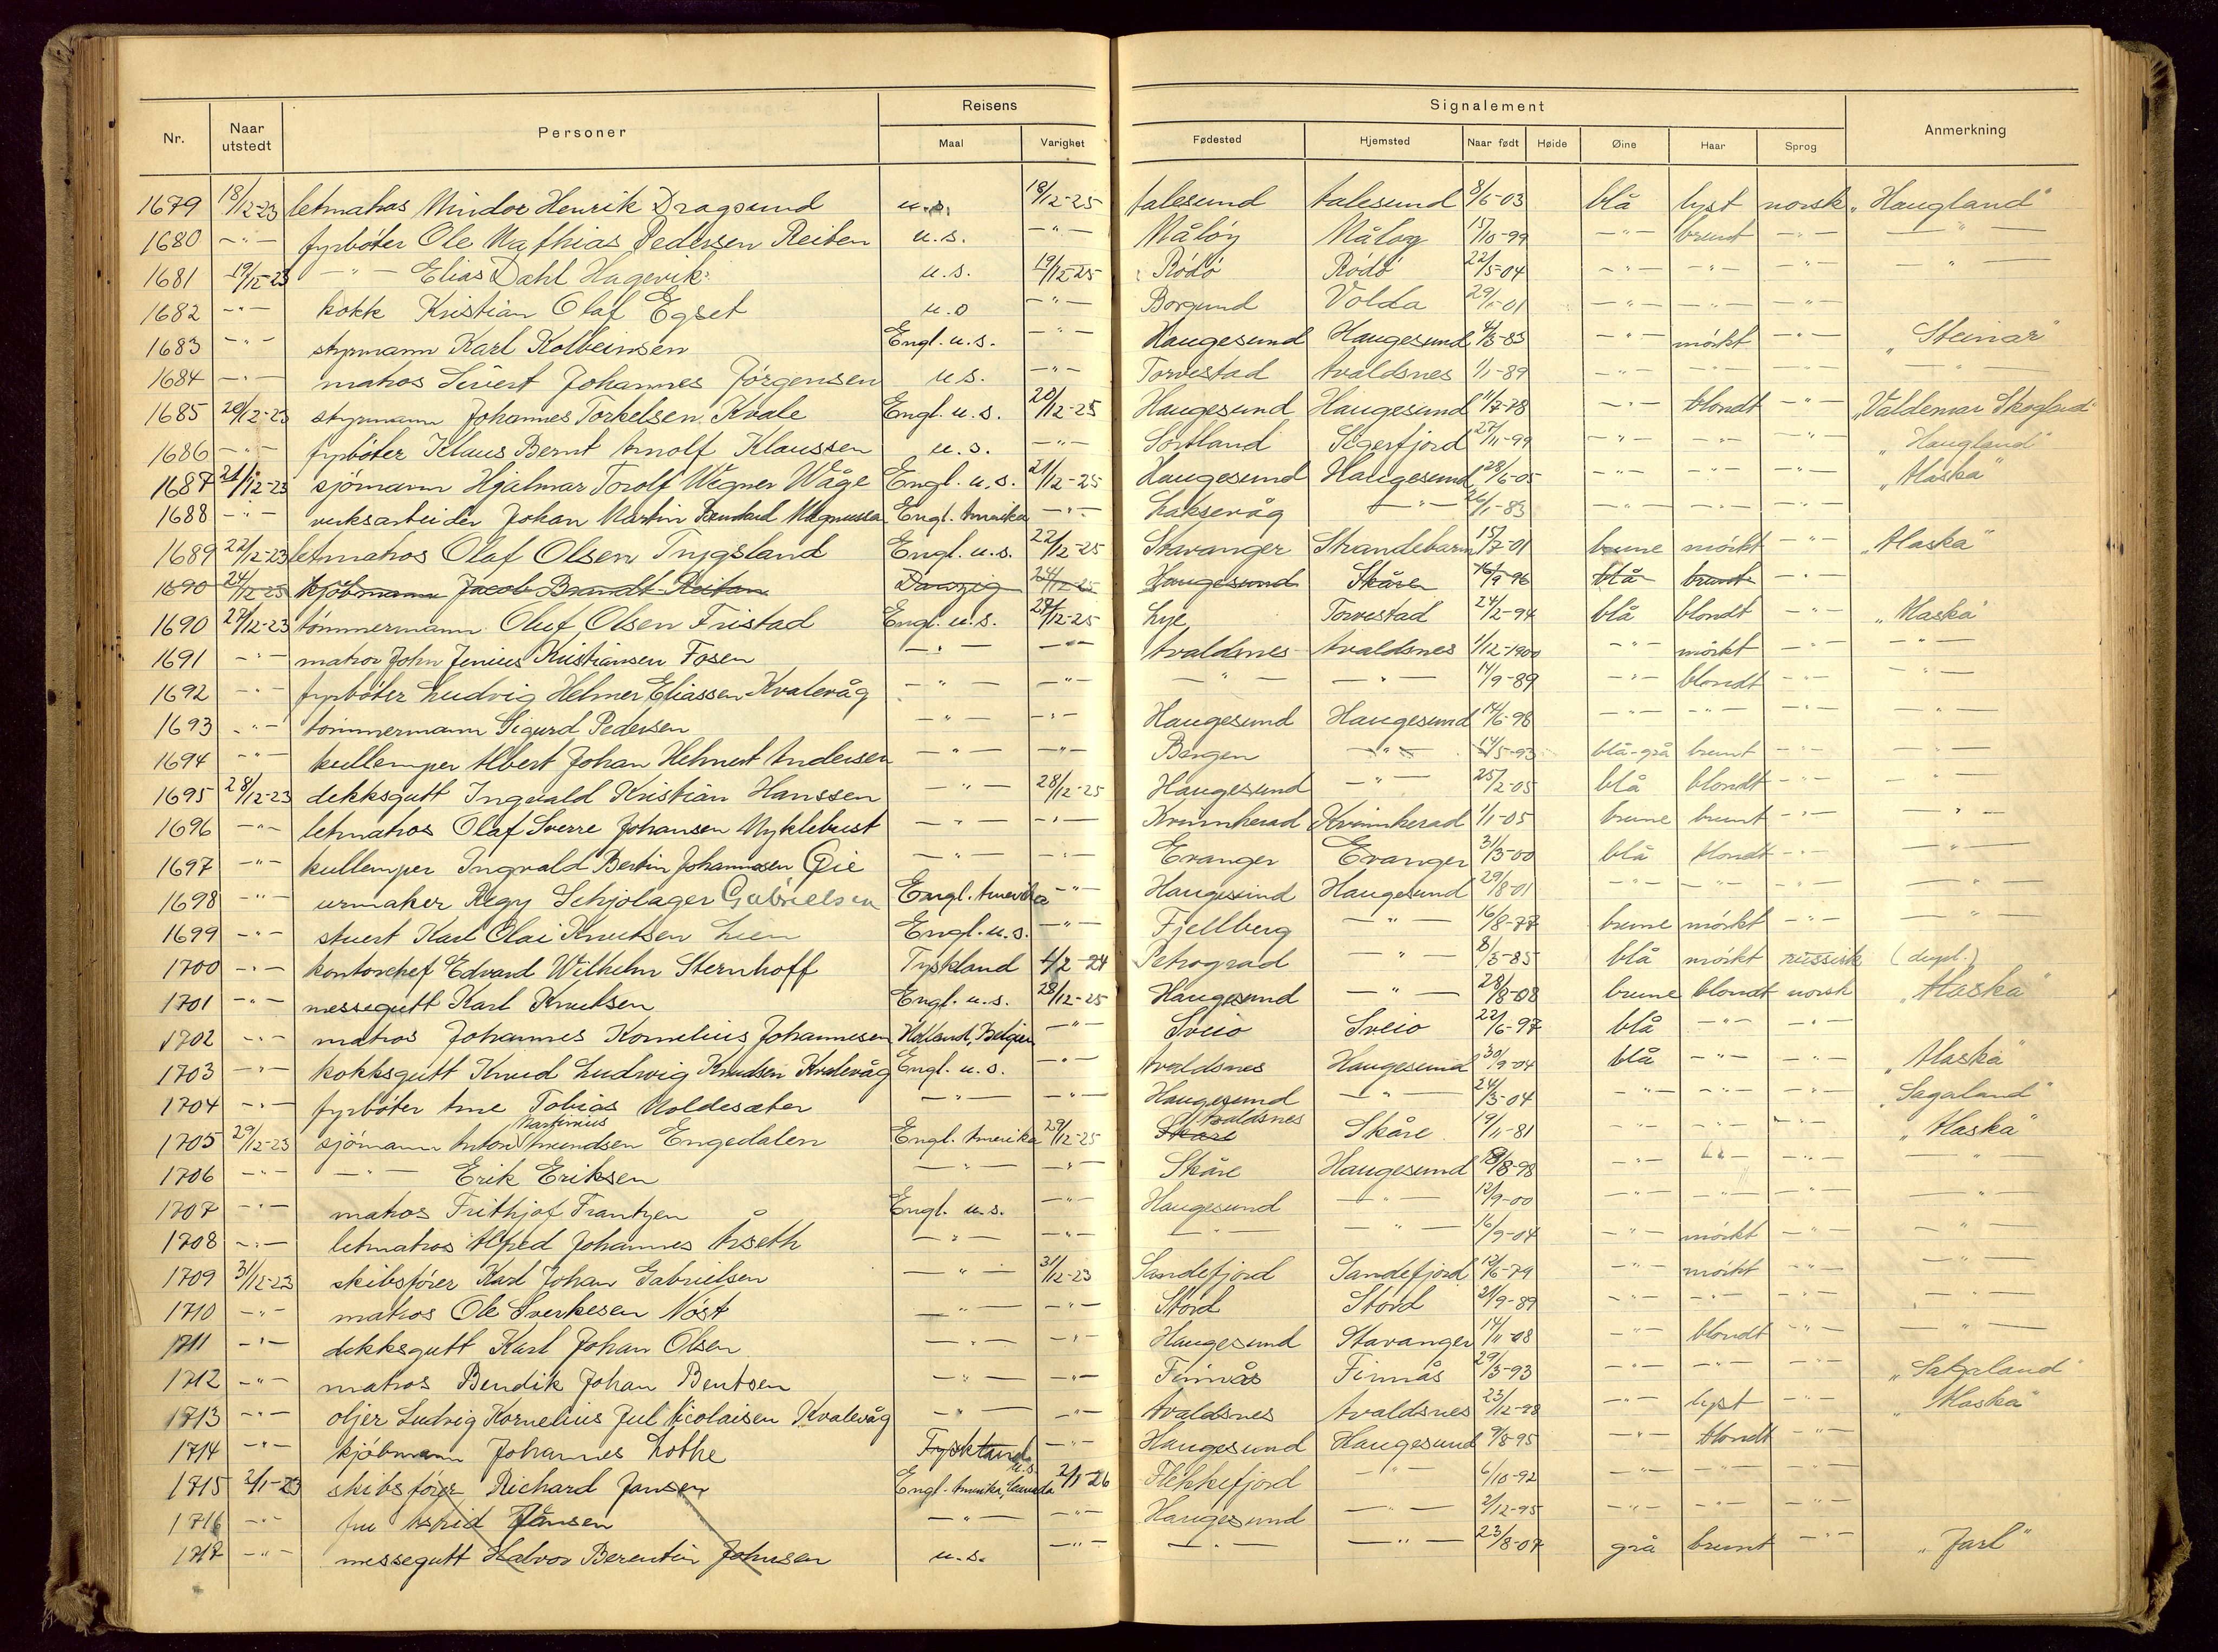 Reisens Signalement
Nr. Naar utstedt Personer Maal Varighet Fødested Hjemsted Naar født Høide Øine Haar Sprog Anmerkning
1679 18/12-23 letmatros Mindor Henrik Dragsund u.s. 18/12-25 Aalesund Aalesund 8/6-03 blå lyst norsk "Haugland"
1680 -"- fyrböter Ole Mathias Pedersen Reiten u.s. -"- Måløy Måløy 15/10-99 -"- brunt -"- -"-
1681 19/12-23 -"- Elias Dahl Hagevik u.s. 19/12-25 Rödö Rödö 22/5-04 -"- -"- -"- -"-
1682 -"- kokk Kristian Olaf Egset u.s -"- Borgund Volda 29/1-01 -"- -"- -"-
1683 -"- styrmann Karl Kolbeinsen Engl. u.s. -"- Haugesund Haugesund 4/3-83 -"- mörkt -"- "Steinar"
1684 -"- matros Sivert Johannes Jörgensen u.s. -"- Torvestad Avaldsnes 1/1-89 -"- -"- -"- -"-
1685 20/12-23 styrmann Johannes Torkelsen Kvale Engl. u.s. 20/12-25 Haugesund Haugesund 11/7-78 -"- blondt -"- "Valdemar Skogland"
1686 -"- fyrböter Klaus Bernt Arnolf Klaussen u.s. -"- Sortland Sigerfjord 27/11-99 -"- -"- -"- "Haugland"
1687 21/12-23 sjömann Hjalmar Torolf Wegner Våge Engl. u.s. 21/12-25 Haugesund Haugesund 28/6-05 -"- -"- -"- "Alaska"
1688 -"- verksarbeider Johan Martin Magnussen Engl. Amerika -"- Laksevåg -"- 26/1-83 -"- -"- -"-
1689 22/12-23 letmatros Olaf Olsen Trygsland Engl. u.s. 22/12-25 Stavanger Strandebarm 15/7-01 brune mörkt -"- "Alaska"
1690 24/12-23 kjöbmann Jacob Brandt Reitan Danzig 24/12-25 Haugesund Skåre 16/9-96 blå brunt -"-
1690 27/12-23 tömmermann Oluf Olsen Fristad Engl. u.s. 27/12-25 Lye Torvestad 24/2-94 blå blondt -"- "Alaska"
1691 -"- matros John Jenius Kristiansen Fosen -"- -"- Avaldsnes Avaldsnes 1/12-1900 -"- mörkt -"- -"-
1692 -"- fyrböter Ludvig Helmer Eliassen Kvalevåg -"- -"- -"- -"- 14/9-89 -"- blondt -"- -"-
1693 -"- tömmermann Sigurd Pedersen -"- -"- Haugesund Haugesund 14/6-98 -"- -"- -"- -"-
1694 -"- kullemper Albert Johan Helmert Andersen -"- -"- Bergen -"- 14/5-93 blå-grå brunt -"- -"-
1695 28/12-23 dekksgutt Ingvald Kristian Hanssen -"- 28/12-25 Haugesund -"- 25/2-05 blå blondt -"- -"-
1696 -"- letmatros Olaf Sverre Johansen Myklebust -"- -"- Kvinnherad Kvinnherad 1/1-05 brune brunt -"- -"-
1697 -"- kullemper Ingvald Bertin Johannesen Øie -"- -"- Evanger Evanger 31/3-00 blå blondt -"- -"-
1698 -"- urmaker Regy Schjolager Gabrielsen Engl. Amerika -"- Haugesund Haugesund 29/8-01 -"- -"- -"- -"-
1699 -"- stuert Karl Olai Knutsen Lien Engl. u.s. -"- Fjellberg -"- 16/8-77 brune mörkt -"- -"-
1700 -"- kontorchef Edvard Wilhelm Sternhoff Tyskland 4/2-24 Petrograd -"- 8/3-85 blå mörkt russisk (dupl.)
1701 -"- messegutt Karl Knutsen Engl. u.s. 28/12-25 Haugesund -"- 28/8-08 brune blondt norsk "Alaska"
1702 -"- matros Johannes Kornelius Johannesen Holland, Belgien -"- Sveio Sveio 22/6-97 blå -"- -"-
1703 -"- kokksgutt Knud Ludvig Knudsen Kvalevåg Engl. u.s. -"- Avaldsnes Haugesund 30/9-04 blå -"- -"- "Alaska"
1704 -"- fyrböter Arne Tobias Moldesæter -"- -"- Haugesund -"- 24/3-04 -"- -"- -"- "Sagaland"
1705 29/12-23 sjömann Anton Martinius Amundsen Engedalen Engl. Amerika 29/12-25 Skåre Avaldsnes Skåre 19/11-81 -"- -"- -"- "Alaska"
1706 -"- -"- Erik Eriksen -"- -"- Skåre Haugesund 18/8-98 -"- -"- -"- -"-
1707 -"- matros Frithjof Frantzen Engl. u.s. -"- Haugesund -"- 12/9-00 -"- -"- -"- -"-
1708 -"- letmatros Alfred Johannes Årseth -"- -"- -"- -"- 16/9-04 -"- mörkt -"- -"-
1709 31/12-23 skibsförer Karl Johan Gabrielsen -"- 31/12-23 Sandefjord Sandefjord 12/6-79 -"- mörkt -"- -"-
1710 -"- matros Ole Sverkesen Nöst -"- -"- Stord Stord 21/9-89 -"- -"- -"- -"-
1711 -"- dekksgutt Karl Johan Olsen -"- -"- Haugesund Stavanger 14/11-08 -"- blondt -"- -"-
1712 -"- matros Bendik Johan Bentsen -"- -"- Finnås Finnås 29/3-93 -"- -"- -"- "Sagaland"
1713 -"- oljer Ludvig Kornelius Jul Nicolaisen Kvalevåg -"- -"- Avaldsnes Avaldsnes 23/12-98 -"- lyst -"- "Alaska"
1714 -"- kjöbmann Johannes Lothe Tyskland u.s. -"- Haugesund Haugesund 9/8-95 -"- blondt -"-
1715 2/1-23 skibsförer Richard Jansen Engl. Amerika, Canada 2/1-26 Flekkefjord -"- 6/10-92 -"- -"- -"-
1716 -"- fru Astrid Jansen -"- -"- Haugesund -"- 2/12-95 -"- -"- -"-
1717 -"- messegutt Halvor Berentin Johnsen u.s. -"- -"- -"- 23/8-07 grå brunt -"- "Jarl"